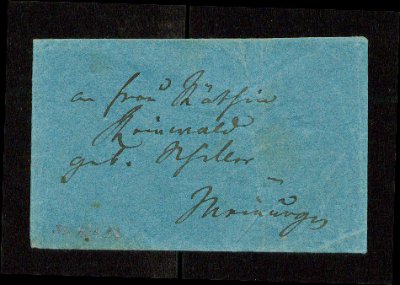 an Frau Räthin
Reinwald
geb. Schiller
Meinungen